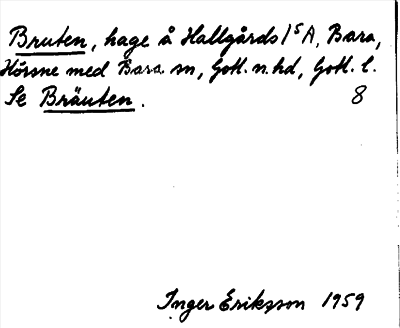 Bruten, hage å Hallgårds 1⁵A, Bara,
Hörsne med Bara sn, Gotl. n. hd, Gotl. l.
Se Bräuten. 8
Inger Eriksson 1959